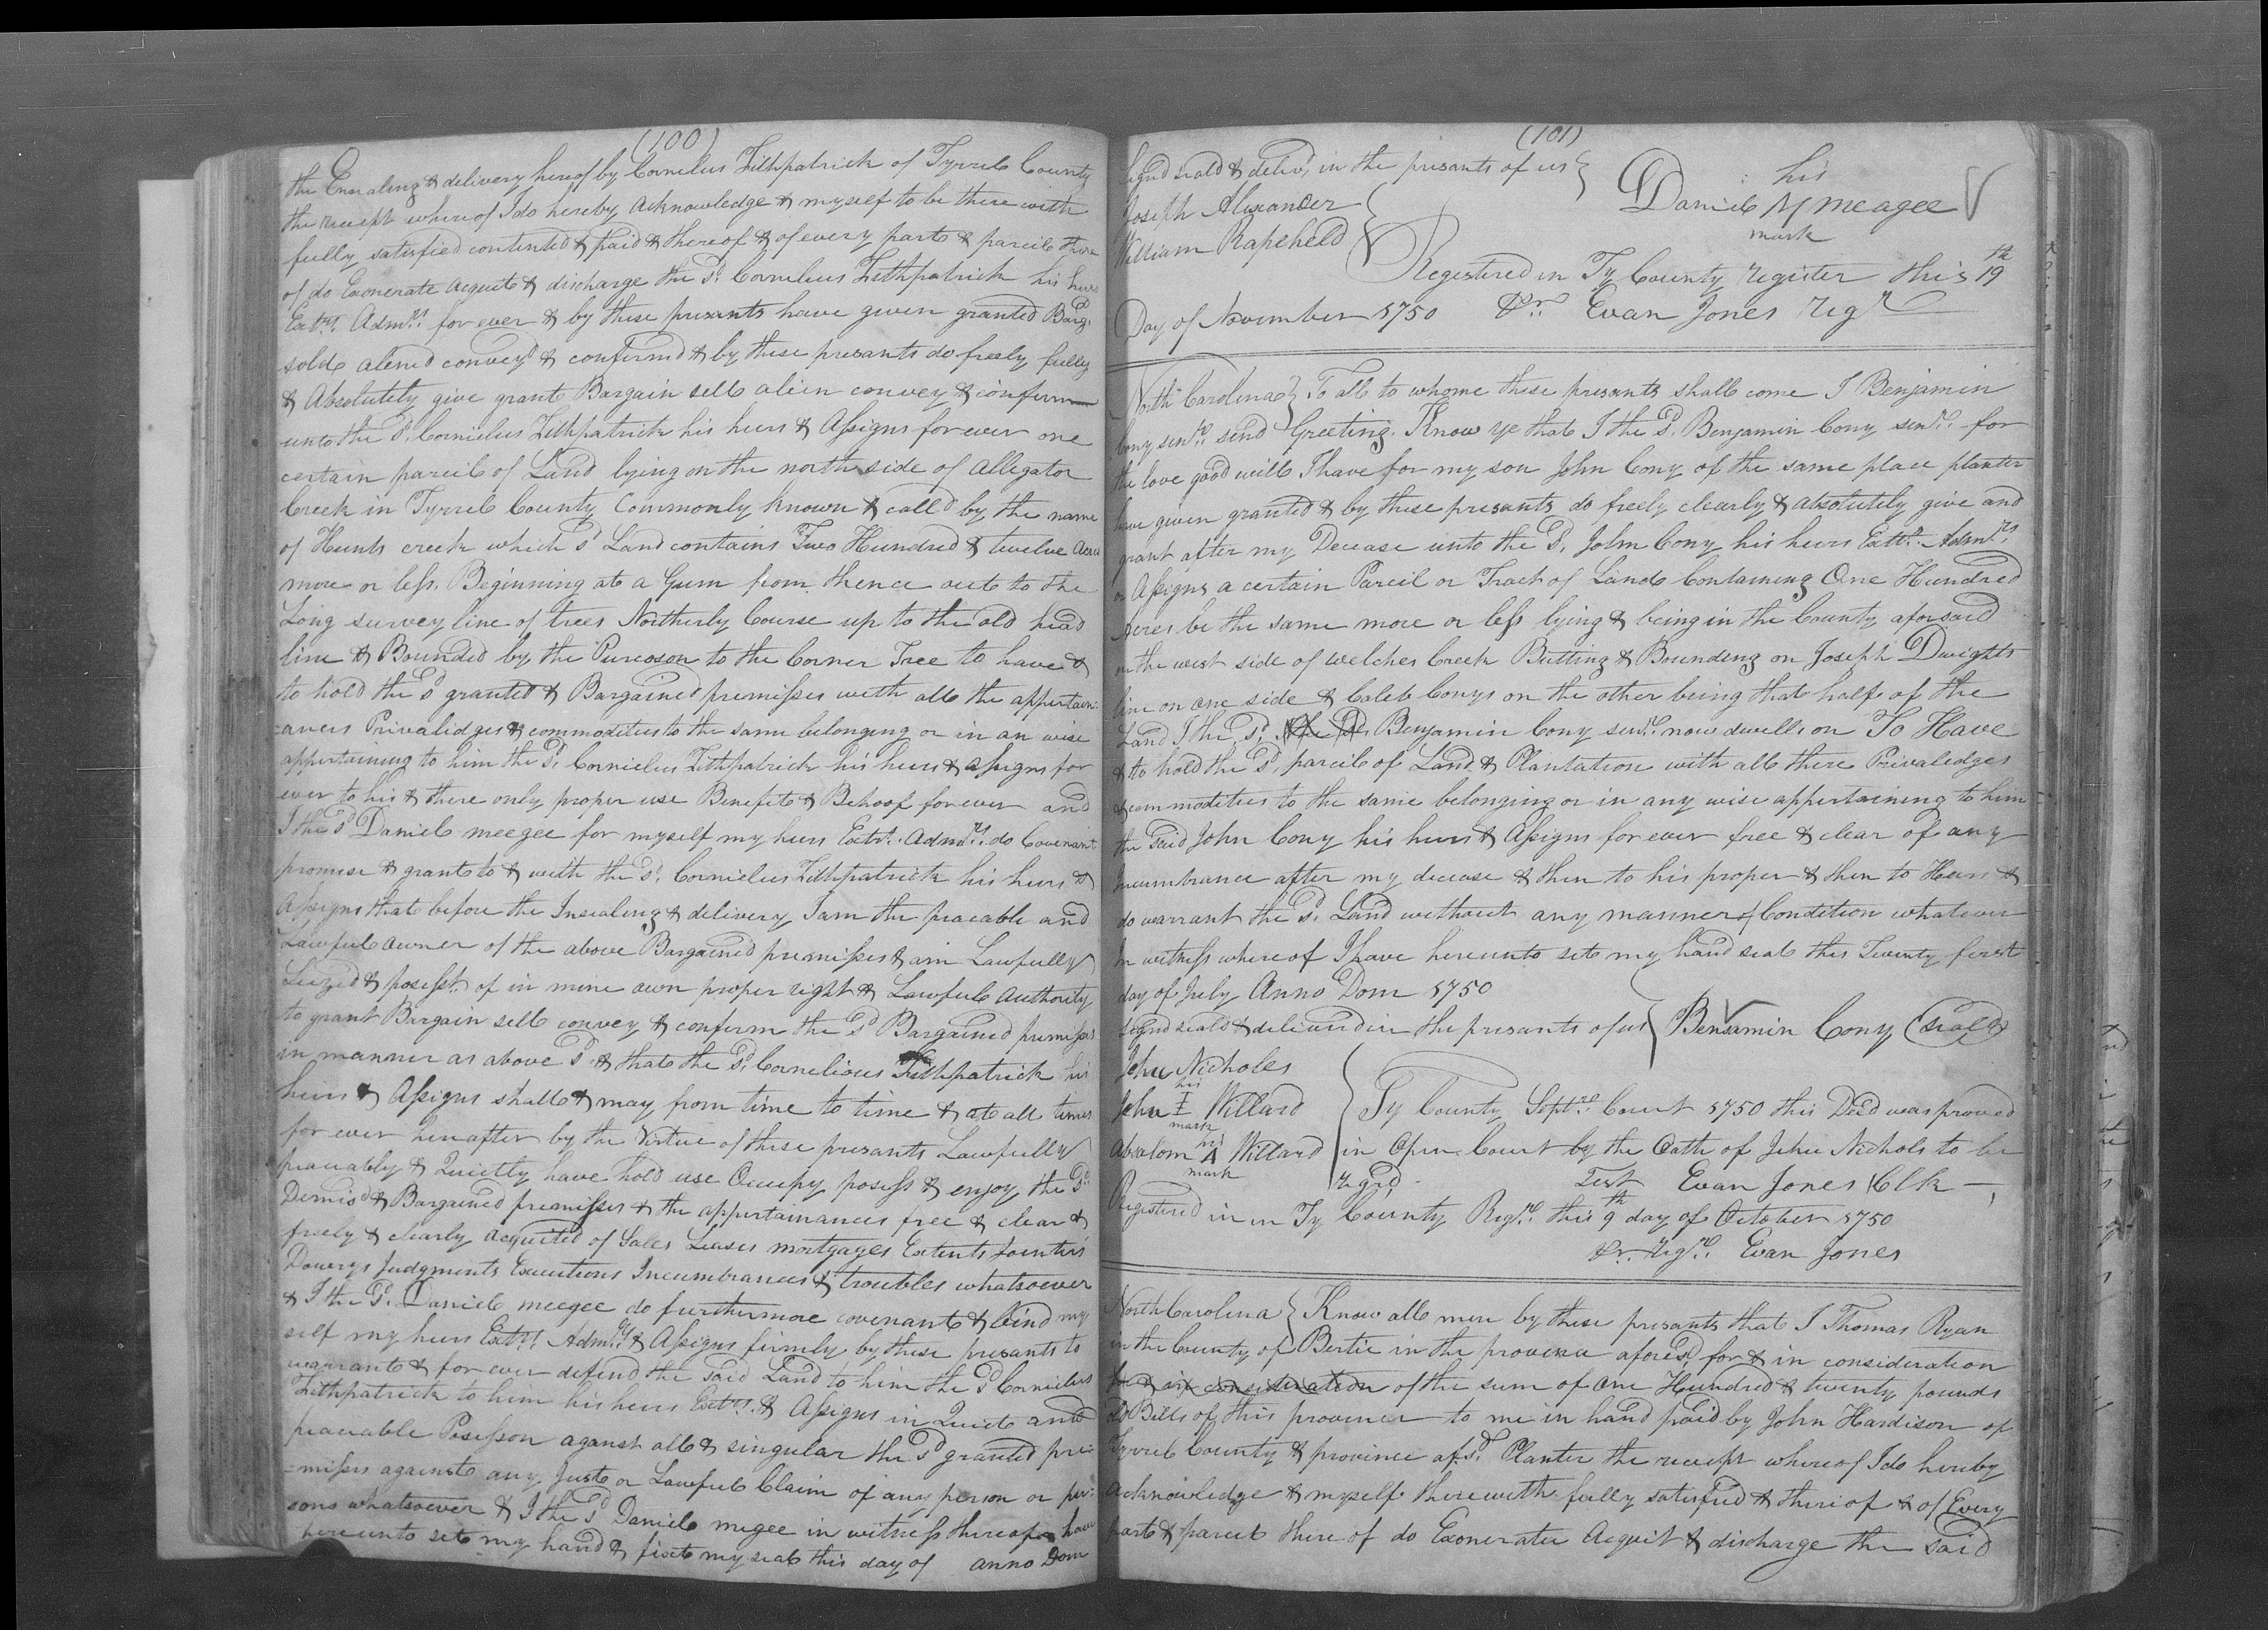 (100)
the Ensealing & delivery hereof by Cornelius Fithpatrick of Tyrrel County
the receipt where of I do hereby acknowledge & myself to be there with
fully satisfied contented & paid & thereof & of every part & parcil there
of do Exonerate acquit & discharge the sd. Cornelius Fithpatrick his heirs
Extrs. Admrs. for ever & by these presants have given granted Barg.
sold aliend convey'd & confirmd & by these presants do freely fully
& Absolutely give grant Bargain sell alien convey & confirm
unto the sd. Cornielus Fithpatrick his heirs & Assigns for ever one
certain parcil of Land lying on the north side of Allegator
Creek in Tyrrel County Commonly known & calld by the name
of Hunts creek which sd Land contains Two Hundred & twelve Acres
more or less. Beginning at a Gum from thence out to the
Long survey line of trees Northerly Course up to the old head
line & Bounded by the Pureoson to the Corner Tree to have &
to hold the sd granted & Bargained premisses with all the appertain-
-ances Privalidges & commodities to the same belonging or in an wise
appertaining to him the sd. Cornielus Fithpatrick his heirs & assigns for
ever to his & there only proper use Benefit & Behoof for ever and
I the sd Daniel meegee for myself my heirs Extrs. Admrs. do Covenant
promise & grant to & with the sd. Cornielus Fithpatrick his heirs &
Assigns that before the Insealing & delivery I am the peacable and
Lawful owner of the above Bargained premisses & am Lawfully
Seized & posesst of in mine own proper right & Lawful Authority
to grant Bargain sell convey & confirm the sd Bargained premisses
in manner as above sd. & that the sd. Cornelious Fithpatrick his
heirs & Assigns shall & may from time to time & at all times
for ever hereafter by the Virtue of these presants Lawfully
peacably & Quietly have hold use Occupy posess & enjoy the sd.
Demisd & Bargained premisses & the appertainances free & clear &
freely & clearly acquited of Sales Leases mortgages Extents Jointirs
Dowrys Judgments Executions Incumbrances & troubles whatsoever
& I the sd. Daniel meegee do furthermore covenant & bind my
self my heirs Extrs. Admrs. & Assigns firmly by these presants to
warrant & for ever defend the said Land to him the sd Cornielus
Fithpatrick to him his heirs Extrs. & Assigns in Quiet and
peacable Posesson aganst all & singular the sd granted pre-
-misses against any Just or Lawful Claim of any person or per-
sons whatsoever & I the sd Daniel megee in witness thereof have
hereunto set my hand & fixt my seal this day of anno Dom
(101)
Signd seald & delivd. in the presants of us
his
Daniel M meagee
mark
Joseph Alexander
William Rapeheld
Registered in Ty County register this 19th
Day of November 1750 Pr. Evan Jones Regr
North Carolina To all to whome these presants shall come I Benjamin
Cony senr. send Greeting. Know ye that I the sd. Benjamin Cony senr. for
the love good will I have for my son John Cony of the same place planter
have given granted & by these presants do freely clearly & absolutely give and
grant after my Decease unto the sd. John Cony his heirs Extrs. Admrs.
or Assigns a certain Parcil or Tract of Land Containing One Hundred
Acres be the same more or less lying & being in the County aforsaid
on the west side of welches Creek Butting & Bounding on Joseph Dwights
line on one side & Caleb Conys on the other being that half of the
Land I the sd. the sd. Benjamin Cony senr. now dwells on To Have
& to hold the sd. parcil of Land & Plantation with all there Privaledges
& commodities to the same belonging or in any wise appertaining to him
the said John Cony his heirs & Assigns for ever free & clear of any
Incumbrance after my decease & then to his proper & then to Heirs &
do warrant the sd. Land without any manner of Condition whatever
In witness where of I have hereunto set my hand seal this Twenty first
day of July Anno Dom 1750
Signd seald & deliverd in the presants of us Benjamin Cony (seald)
John Nicholes
his
John I Willard
mark
Ty County Septr. Court 1750 this Deed was proved
his
Absolom A Willard
mark
in Open Court by the Oath of John Nichols to be
regrd. Test Evan Jones Clk
Registered in in Ty County Regr. this 9th day of October 1750
Pr. Regr. Evan Jones
North Carolina Know all men by these presants that I Thomas Ryan
in the County of Bertie in the province aforesd. for & in consideration
for & in consideration of the sum of one Hundred & twenty pounds
Bills of this province to me in hand paid by John Hardison of
Tyrrel County & province afsd. Planter the receipt where of I do hereby
acknowledge & myself therewith fully satisfied & there of & of Every
part & parcel there of do Exonerate Acquit & discharge the said